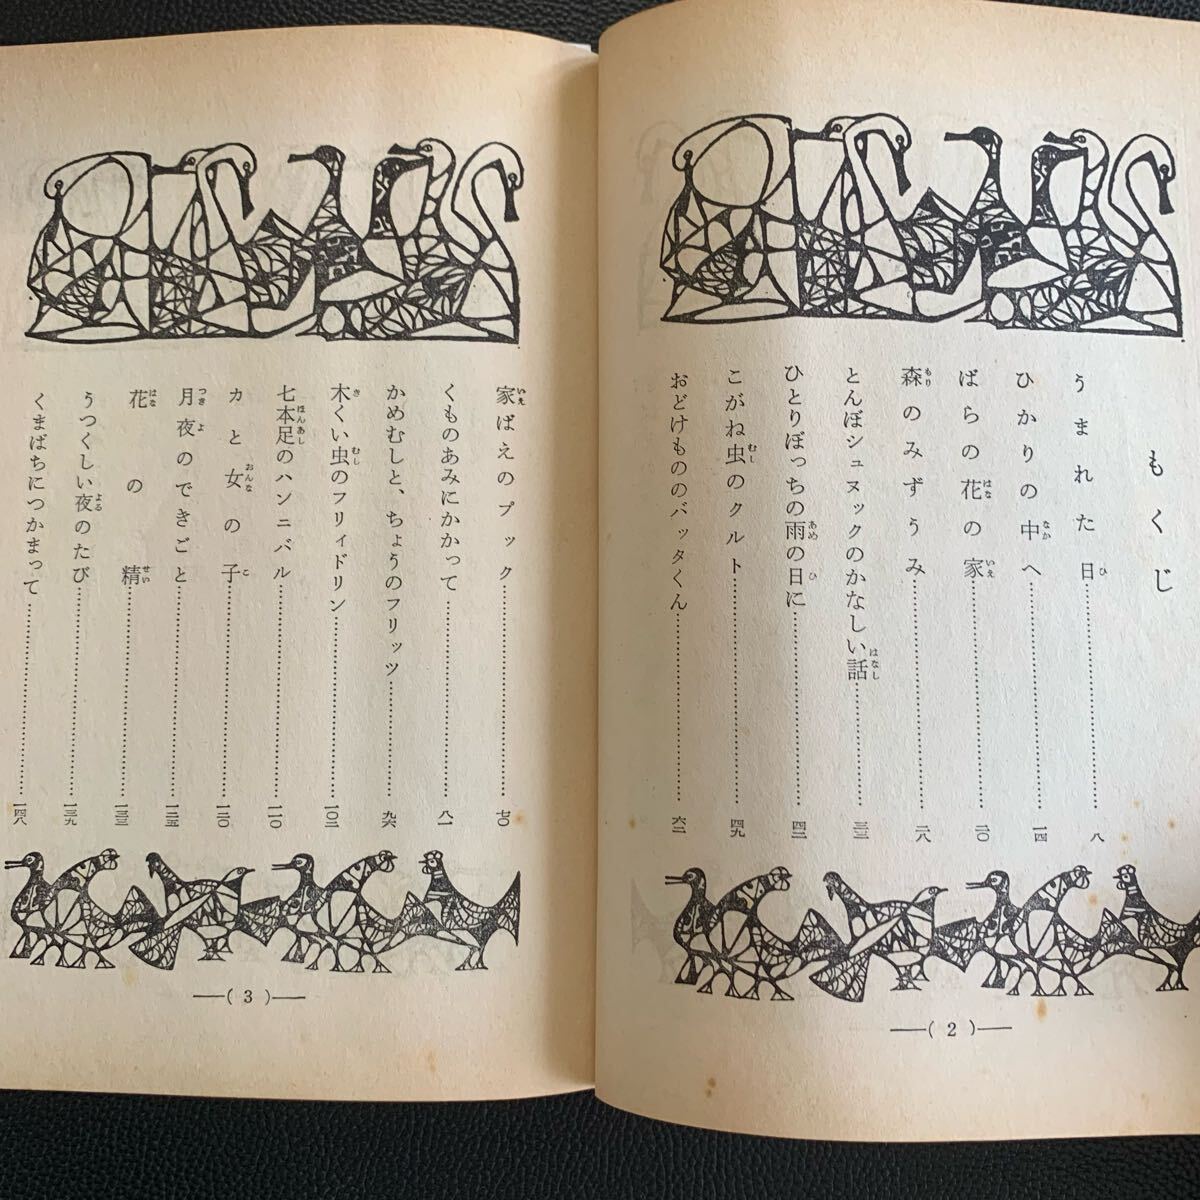 もくじ
うまれた日……………八
ひかりの中へ……………一四
ばらの花の家……………二〇
森のみずうみ……………二八
とんぼシュヌックのかなしい話……………三三
ひとりぼっちの雨の日に……………四二
こがね虫のクルト……………四九
おどけもののバッタくん……………六二
—( 2 )—
家ばえのプック……………七〇
くものあみにかかって……………八一
かめむしと、ちょうのフリッツ……………九六
木くい虫のフリィドリン……………一〇二
七本足のハンニバル……………一一〇
カと女の子……………一二〇
月夜のできごと……………一二五
花の精……………一三三
うつくしい夜のたび……………一三九
くまばちにつかまって……………一四八
—( 3 )—